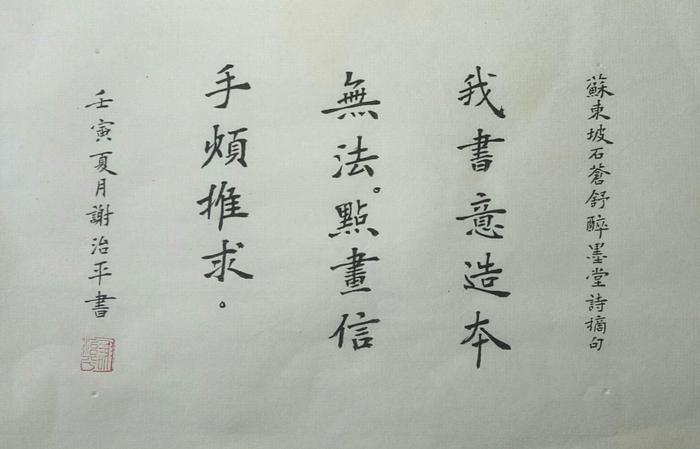 蘇東坡石蒼舒醉墨堂詩摘句
我書意造本
無法。點畫信
手煩推求。
壬寅夏月謝治平書